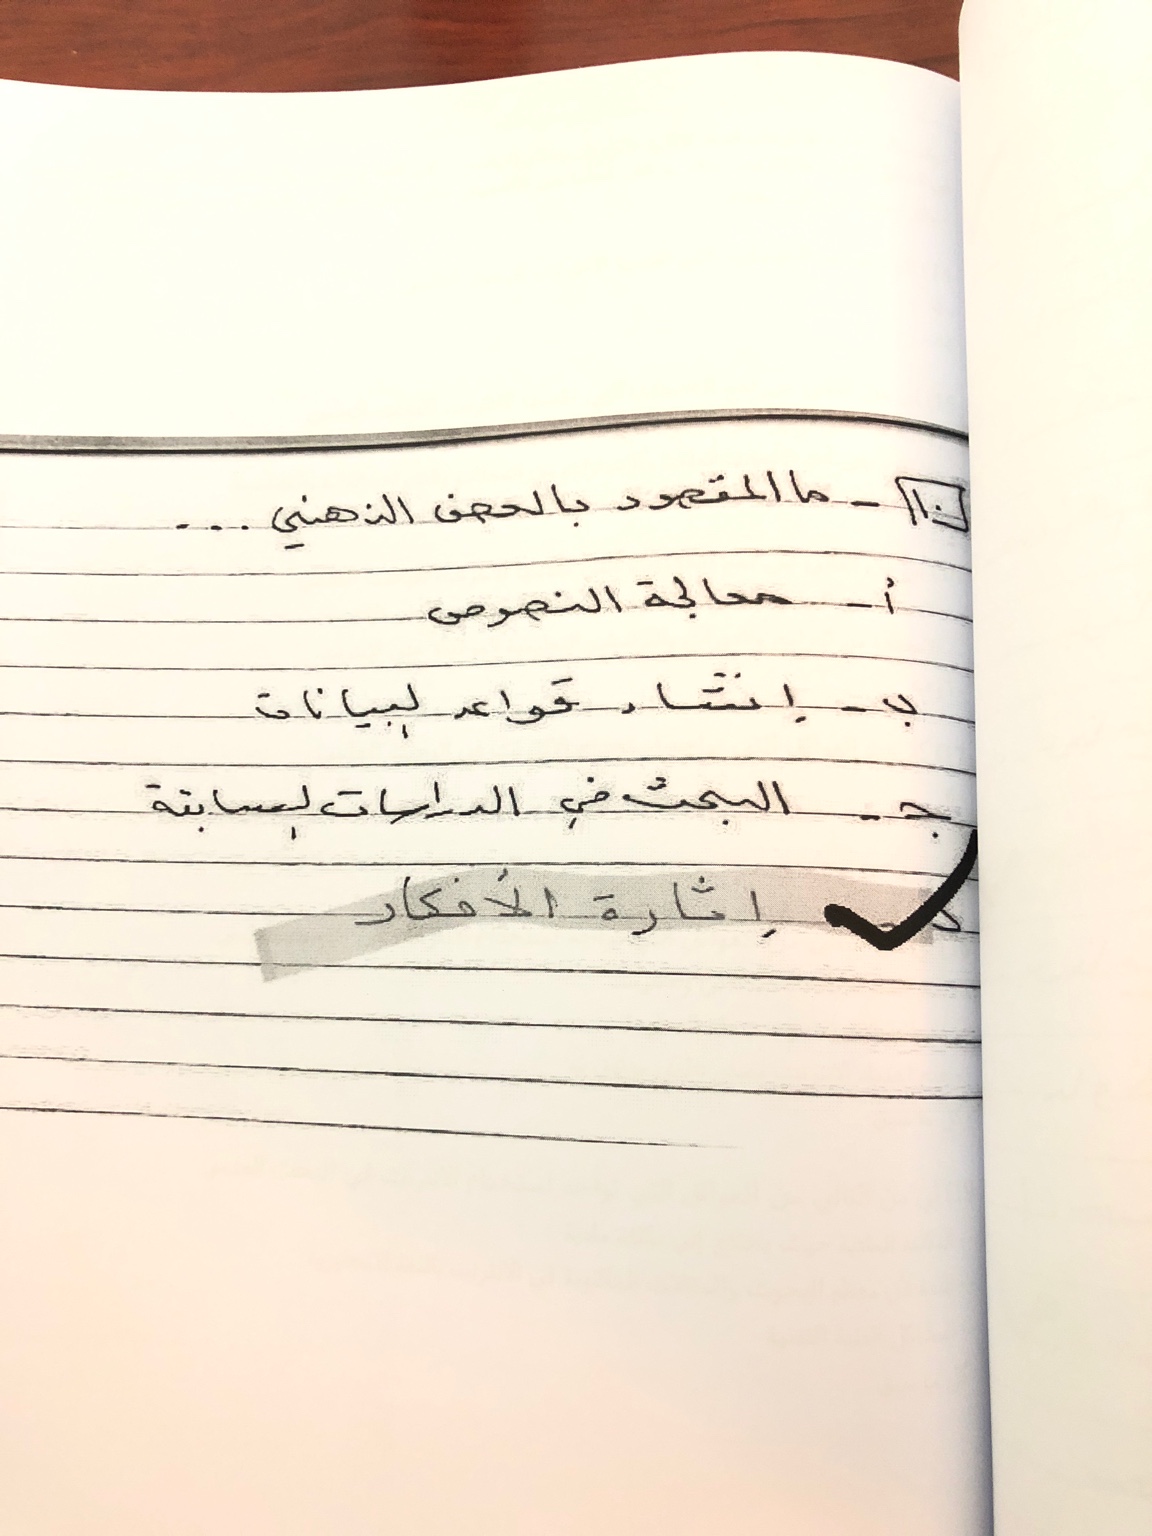 ١٠ - ما المقصود بالعصف الذهني ...
أ - معالجة النصوص
ب - إنشاء قواعد البيانات
ج - البحث في الدراسات السابقة
د - إثارة الأفكار